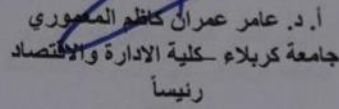 أ. د. عامر عمران كاظم المعموري
جامعة كربلاء – كلية الادارة والاقتصاد
رئيساً